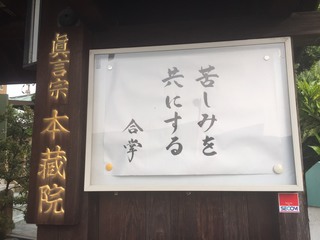 眞言宗 本藏院
苦しみを
共にする
合掌
SECOM